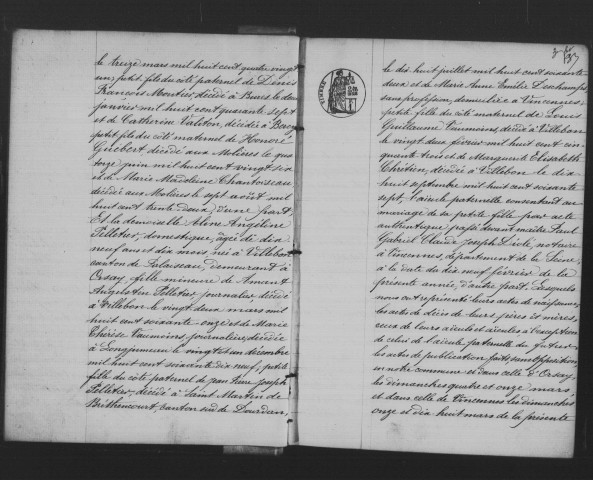 le treize mars mil huit cent quatre vingt
un, petit fils du côté paternel de Denis
François Montier, décédé à Bures le deux
janvier mil huit cent quarante sept
et de Catherine Valeton, décédée à Bures
petit fils du côté maternel de Honoré
Guibert décédé aux Molières le qua
torze juin mil huit cent vingt six
et de Marie Madeleine Chantoiseau
décédée aux Molières le sept août mil
huit cent trente deux, d'une part,
Et la demoiselle Aline Angéline
Pelletier, domestique, âgée de dix
neuf ans et dix mois, née à Villebon
canton de Palaiseau, demeurant à
Orsay, fille mineure de Amant
Augustin Pelletier, journalier, décédé
à Villebon le vingt deux mars mil
huit cent soixante onze et de Marie
Thérèse Vaumoins, journalière, décédée
à Longjumeau le vingt six décembre
mil huit cent soixante dix neuf, petite
fille du côté paternel de Jean Pierre Joseph
Pelletier, décédé à Saint Martin de
Bréthencourt, canton sud de Dourdan,
37
le dix huit juillet mil huit cent soixante
deux et de Marie Anne Emilie Deschamps
sans profession, demeurant à Vincennes,
petite fille du côté maternel de Louis
Guillaume Vaumoins, décédé à Villebon
le vingt deux février mil huit cent cin
quante trois et de Marguerite Elisabeth
Chrétien, décédée à Villebon le dix
huit septembre mil huit cent soixante
sept, l'aieule paternelle consentant au
mariage de sa petite fille par acte
authentique passé devant maître Paul
Gabriel Claude Joseph, notaire
à Vincennes, département de la Seine
à la date du dix neuf février de la
présente année, d'autre part. Lesquels
nous ont représenté leurs actes de naissance,
les actes de décès de leurs pères et mères,
ceux de leurs aieuls et aieules à l'exception
de celui de l'aieule paternelle du futur
les actes de publication faits sans opposition,
en notre commune et dans celle d'Orsay
les dimanches quatre et onze mars
et dans celle de Vincennes les dimanches
onze et dix huit mars de la présente